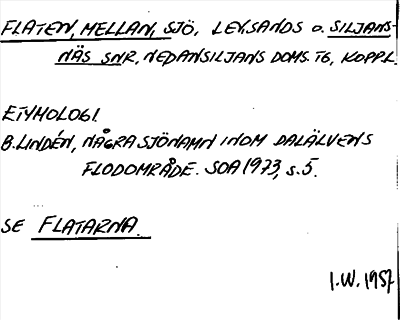 FLATEN, MELLAN, SJÖ, LEKSANDS O. SILJANS-
NÄS SNR, NEDANSILJANS DOMS. TG, KOPP.L.
ETYMOLOGI
B. LINDÉN, NÅGRA SJÖNAMN INOM DALÄLVENS
FLODOMRÅDE. SOÅ 1973, S. 5.
SE FLATARNA.
I.W. 1957